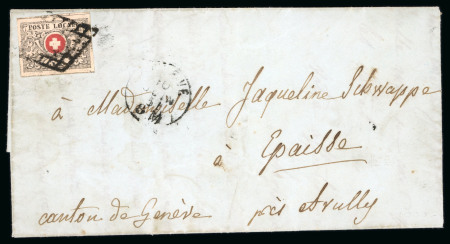 POSTE LOCALE
GENÈVE
à Mademoiselle Jaqueline Schwappe
à
Epaisse
canton de Genève près Avully